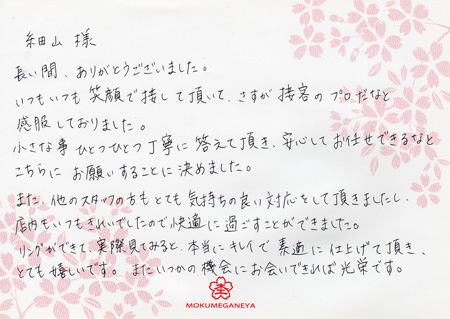 細山 様
長い間、ありがとうございました。
いつもいつも 笑顔で接して頂いて、さすが 接客の プロだなと
感服しておりました。
小さな事 ひとつひとつ 丁寧に 答えて頂き、安心して お任せできるなと
こちらに お願いすることに 決めました。
また、他のスタッフの方も とても 気持ちの良い対応をして頂きましたし、
店内もいつもきれいでしたので 快適に 過ごすことができました。
リングができて、実際見てみると、本当にキレイで 素適に 仕上げて頂き、
とても 嬉しいです。 また いつかの 機会に お会いできれば 光栄です。
MOKUMEGANEYA